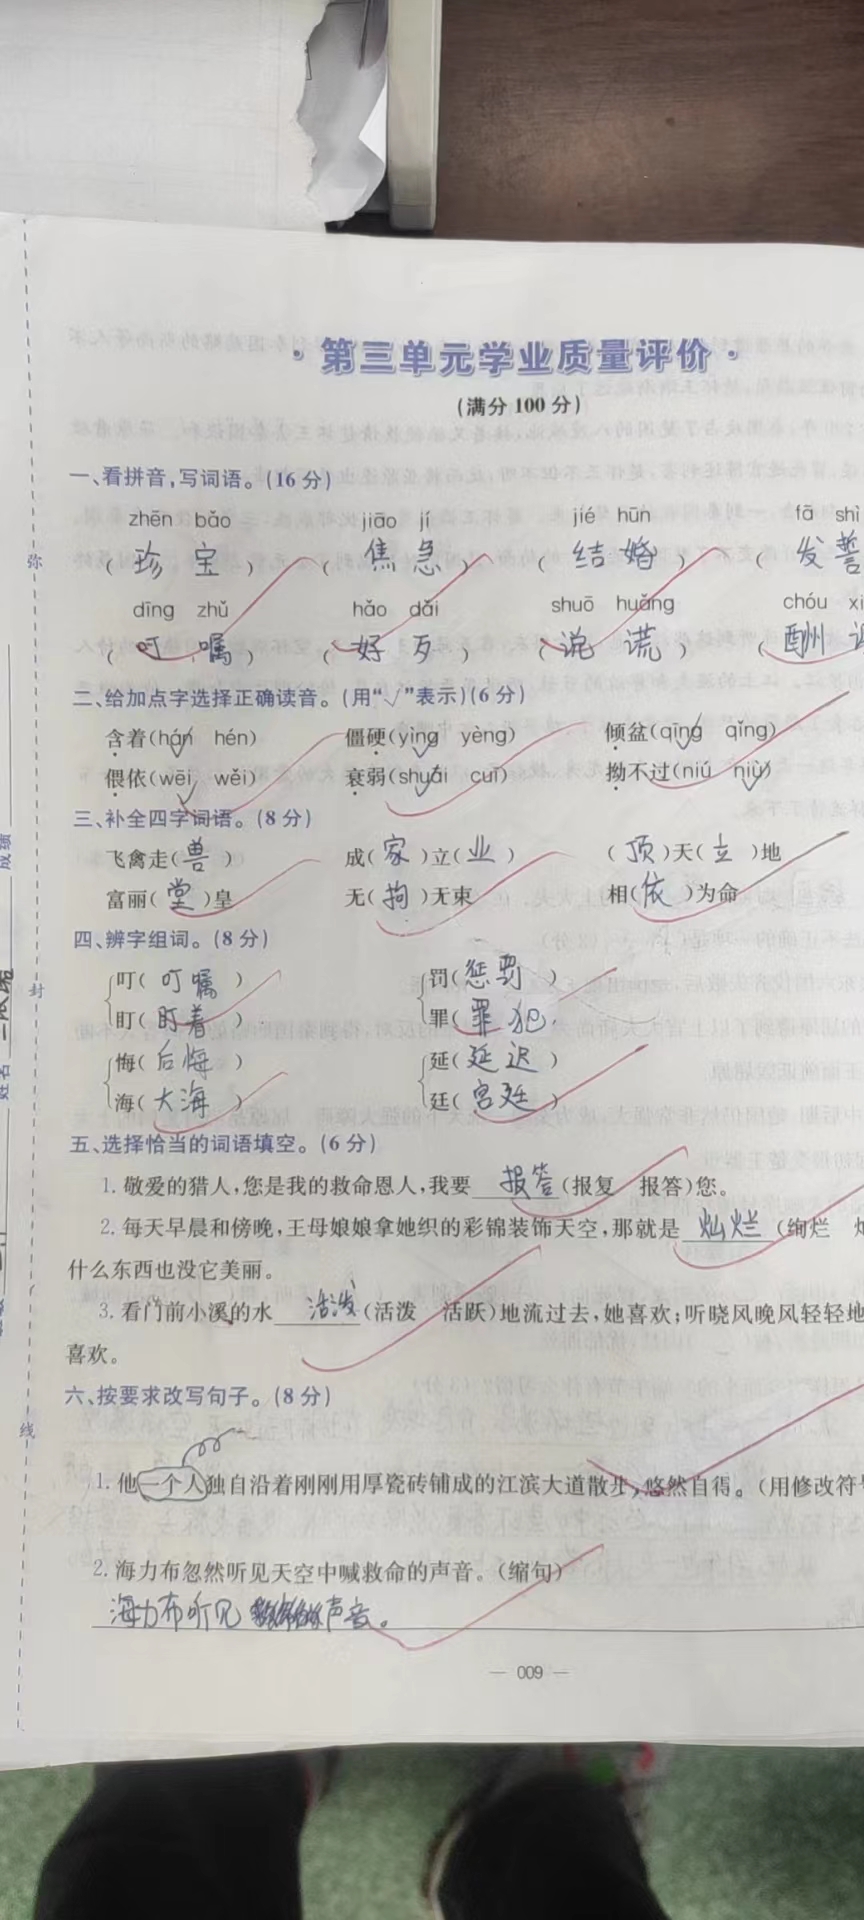 ·第三单元学业质量评价·
(满分100分)
一、看拼音,写词语。(16分)
zhēn bǎo jiāo jí jié hūn fā shì
(珍宝) (焦急) (结婚) (发誓
dīng zhǔ hǎo dǎi shuō huǎng chóu xi
(叮嘱) (好歹) (说谎) (酬
二、给加点字选择正确读音。(用“√”表示)(6分)
含着(hán√ hén) 僵硬(yìng√ yèng) 倾盆(qīng√ qǐng)
偎依(wēi√ wěi) 衰弱(shuāi√ cuī) 拗不过(niú niù√)
三、补全四字词语。(8分)
飞禽走(兽) 成(家)立(业) (顶)天(立)地
富丽(堂)皇 无(拘)无束 相(依)为命
四、辨字组词。(8分)
叮(叮嘱) 罚(惩罚)
盯(盯着) 罪(罪犯)
悔(后悔) 延(延迟)
海(大海) 廷(宫廷)
五、选择恰当的词语填空。(6分)
1.敬爱的猎人,您是我的救命恩人,我要 报答 (报复 报答)您。
2.每天早晨和傍晚,王母娘娘拿她织的彩锦装饰天空,那就是 灿烂 (绚烂
什么东西也没它美丽。
3.看门前小溪的水 活泼 (活泼 活跃)地流过去,她喜欢;听晓风晚风轻轻地
喜欢。
六、按要求改写句子。(8分)
1.他一个人独自沿着刚刚用厚瓷砖铺成的江滨大道散步,悠然自得。(用修改符号
2.海力布忽然听见天空中喊救命的声音。(缩句)
海力布听见声音。
— 009 —
弥
封
线
成绩
姓名